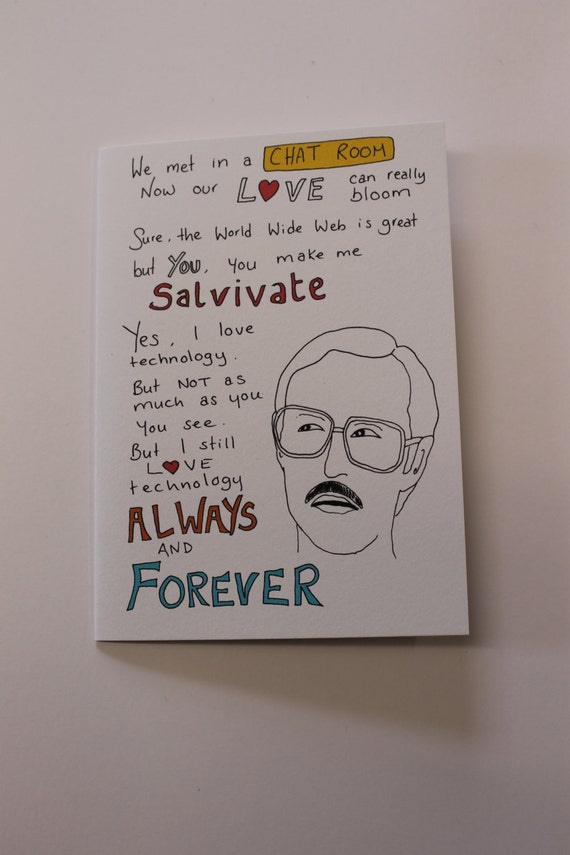 We met in a CHAT ROOM
Now our LOVE can really bloom
Sure, the World Wide Web is great
but YOU, you make me
Salvivate
Yes, I love
technology.
But NOT as
much as you
you see.
But I still
LOVE
technology
ALWAYS
AND
FOREVER